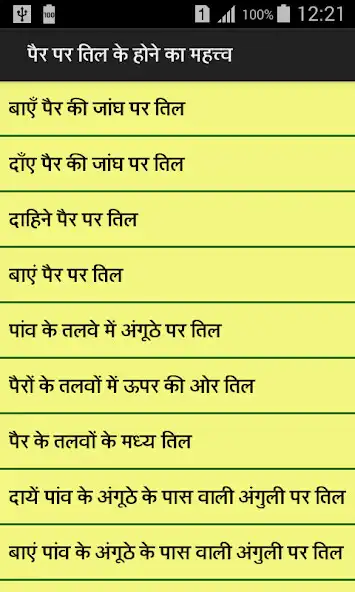 100
1 100% 12:21
पैर पर तिल के होने का महत्त्व
बाएँ पैर की जांघ पर तिल
दाँए पैर की जांघ पर तिल
दाहिने पैर पर तिल
बाएं पैर पर तिल
पांव के तलवे में अंगूठे पर तिल
पैरों के तलवों में ऊपर की ओर तिल
पैर के तलवों के मध्य तिल
दायें पांव के अंगूठे के पास वाली अंगुली पर तिल
बाएं पांव के अंगूठे के पास वाली अंगुली पर तिल